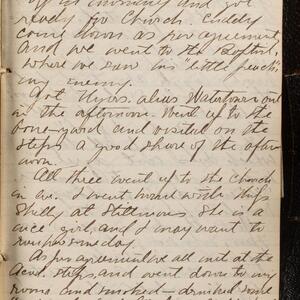 up in morning and got
ready for Church. Cudely
come down as per agreement
and we went to the Baptist,
where we saw his "little peach"
my enemy.
Got Myers alias Watertown out
in the afternoon. Went up to the
bone-yard and visited on the
steps a good share of the after-
noon.
All three went up to the Church
in eve. I went home with Miss
Shelly at Stillmans. She is a
nice girl, and I may want to
someday.
As per agreement we all met at the
Acad. steps, and went down to my
room and smoked - drinked some